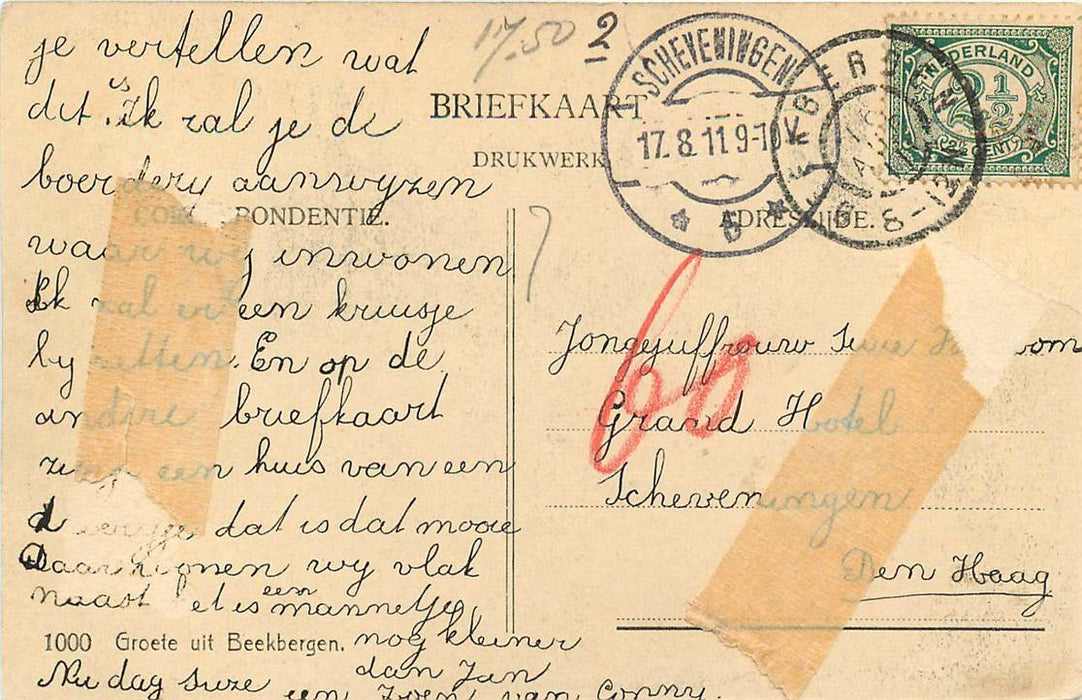 je vertellen wat
dit is. Ik zal je de
boerdery aanwyzen
waar wy inwonen
Ik zal er een kruisje
by zetten. En op de
andere briefkaart
zie je een huis van een
dat is dat mooie
Daar wonen wy vlak
naast het is een mannetje
nog kleiner
dan Jan
Nu dag Suze een zoen van Conny.
1000 Groete uit Beekbergen.
17.50 2
BRIEFKAART
DRUKWERK
CORRESPONDENTIE.
ADRESZIJDE.
SCHEVENINGEN
17.8.11 9-10
5
BEEKBERGEN
8-12
NEDERLAND
2½
(2½ CENT)
60
Jongejuffrouw Suze
Grand Hotel
Scheveningen
Den Haag